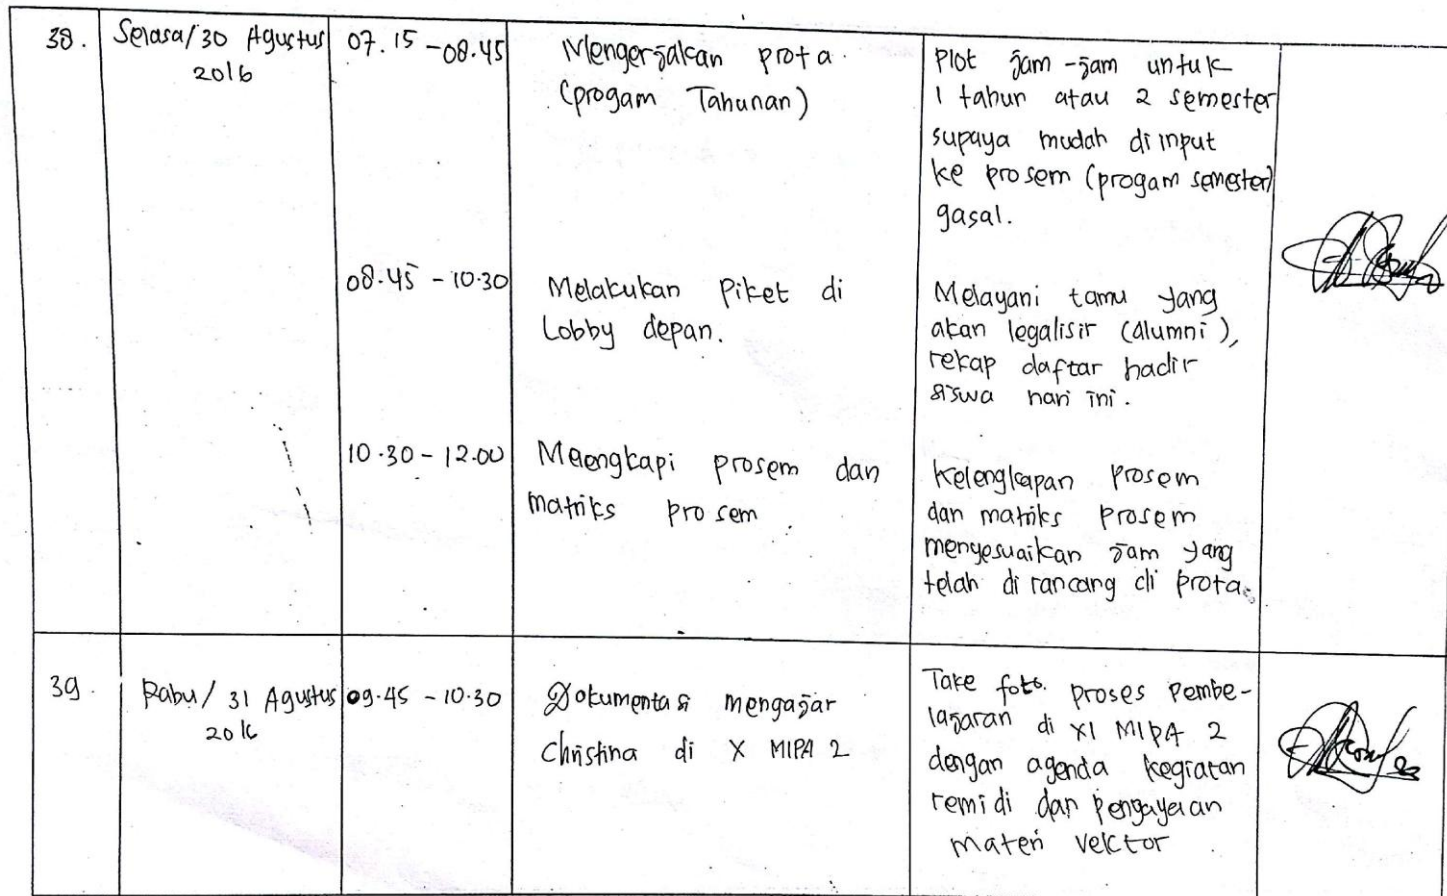 38.
Selasa/30 Agustus
2016
07.15 -08.45
Mengerjakan prota.
(progam Tahunan)
Plot jam-jam untuk
1 tahun atau 2 semester
supaya mudah di input
ke prosem (progam semester)
gasal.
08.45 - 10.30
Melakukan Piket di
Lobby depan.
Melayani tamu yang
akan legalisir (alumni),
rekap daftar hadir
siswa hari ini.
10.30 - 12.00
prosem dan
matriks prosem
Kelengkapan Prosem
dan matriks Prosem
menyesuaikan jam yang
telah di rancang di prota.
39.
Rabu/ 31 Agustus
2016
09.45 - 10.30
Dokumentasi mengajar
Christina di X MIPA 2
Take foto proses Pembe-
lajaran di XI MIPA 2
dengan agenda kegiatan
remidi dan pengayaan
materi vektor